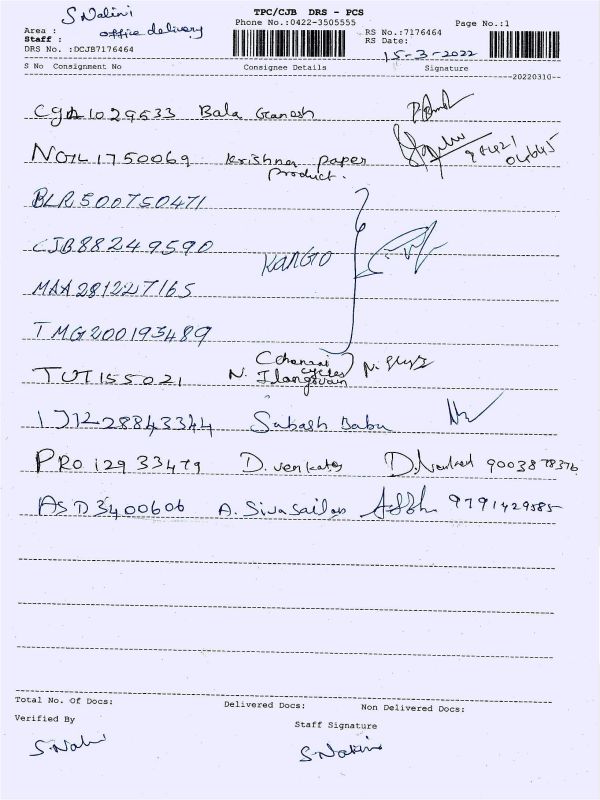 S Nalini
office delivery
TPC/CJB DRS - PCS
Phone No.:0422-3505555
Page No.:1
Area :
Staff :
DRS No. :DCJB7176464
RS No.:7176464
RS Date:
15-3-2022
S No Consignment No Consignee Details Signature
20220310
1029533 Bala Ganesh
1750069 Krishna paper
product.
BLR500750471
CJB88249590
KANGO
MAA281227165
TMG200193489
Chennai
cycles
TUT155021 N. Ilangovan
28843344 Subash Babu
PRO12933479 D. Venkates D. Venkat 9003878376
ASD3400606 A. Sivasailap 9791429585
Total No. Of Docs: Delivered Docs: Non Delivered Docs:
Verified By
Staff Signature
S. Nalini
S. Nalini